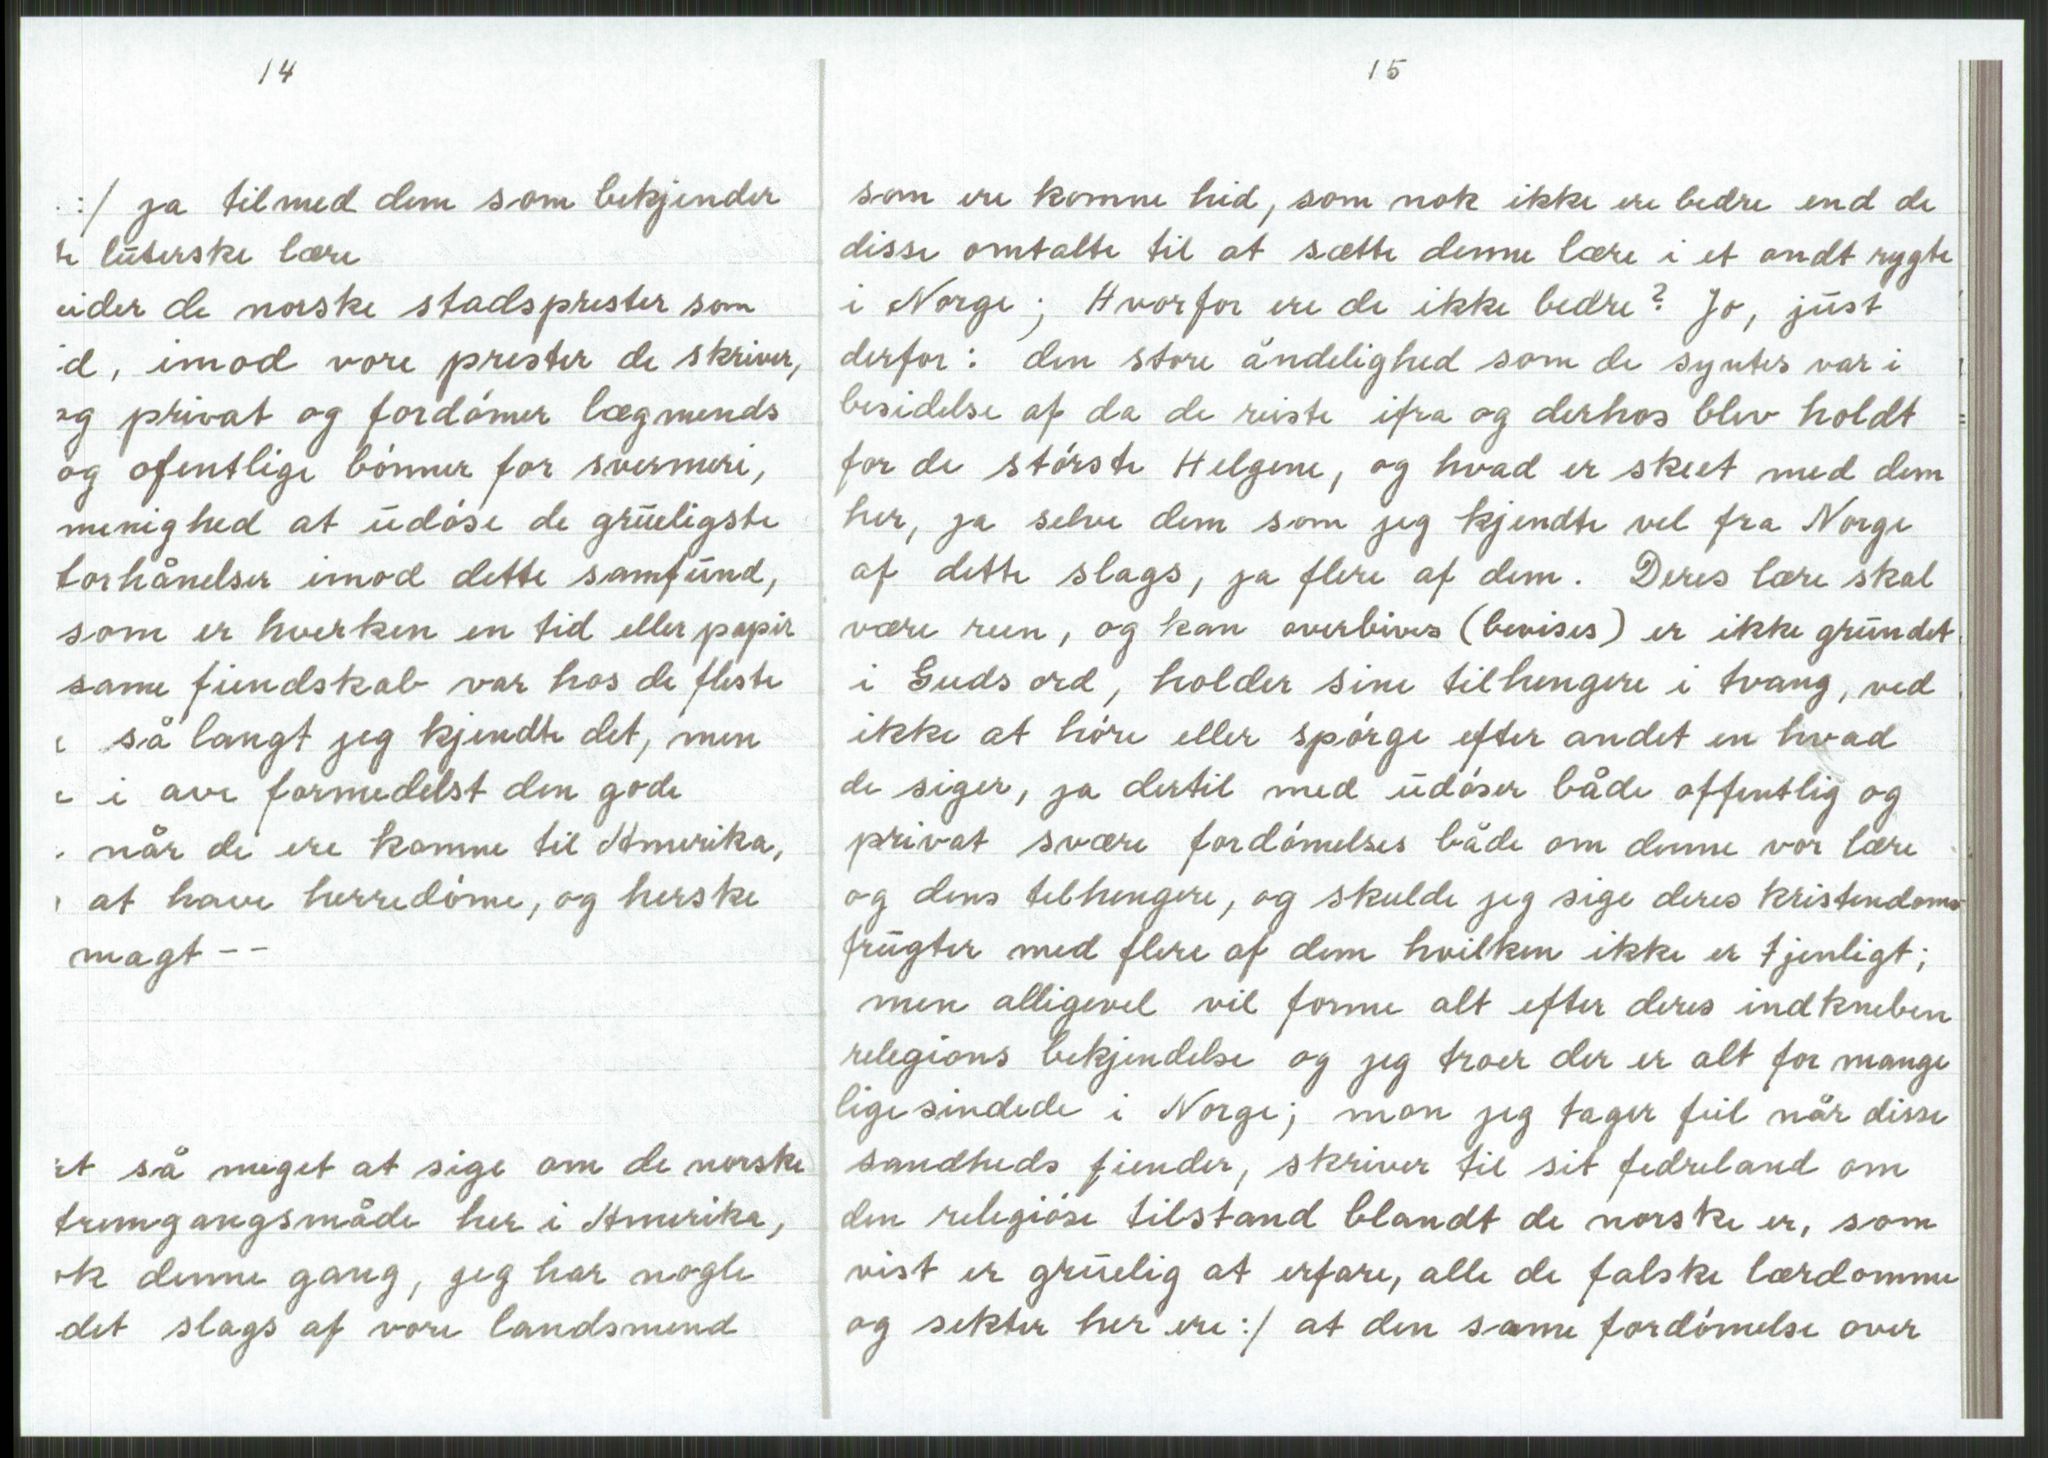 14
:/ ja tilmed dem som bekjender
te lūterske lære
eider de norske stadsprester som
d, imod vore prester de skriver,
og privat og fordómer lægmends
og ofentlige bónner for svermeri,
menighed at ūdóse de grūeligste
forhånelser imod dette samfūnd,
som er hverken en tid eller papir
same fiendskab var hos de fleste
så langt jeg kjendte det, men
i ave formedelst den gode
når de ere komne til Amerika,
at have herredóme, og herske
magt --
et så meget at sige om de norske
fremgangsmåde her i Amerika,
ok denne gang, jeg har nogle
det slags af vore landsmend
15
som ere komne hid, som nok ikke ere bedre end de
disse omtalte til at sætte denne lære i et ondt rygte
i Norge; Hvorfor ere de ikke bedre? Jo, jūst
derfor: den store åndelighed som de syntes var i
besidelse af da de reiste ifra og derhos blev holdt
for de stórste Helgene, og hvad er skeet med dem
her, ja selve dem som jeg kjendte vel fra Norge
af dette slags, ja flere af dem. Deres lære skal
være reen, og kan overbives (bevises) er ikke grūndet
i Guds ord, holder sine tilhengere i tvang, ved
ikke at hóre eller spórge efter andet en hvad
de siger, ja dertil med ūdóser både offentlig og
privat svære fordómelses både om denne vor lære
og dens telhengere, og skulde jeg sige deres kristendoms
frūgter med flere af dem hvilken ikke er tjenligt;
men alligevel vil forme alt efter deres indkneben
relegions bekjendelse og jeg troer der er alt for mange
ligesindede i Norge; mon jeg tager feil når disse
sandheds fiender, skriver til sit fedreland om
den relegióse tilstand blandt de norske er, som
vist er grūelig at erfare, alle de falske lærdomme
og sekter her ere :/ at den same fordómelse over